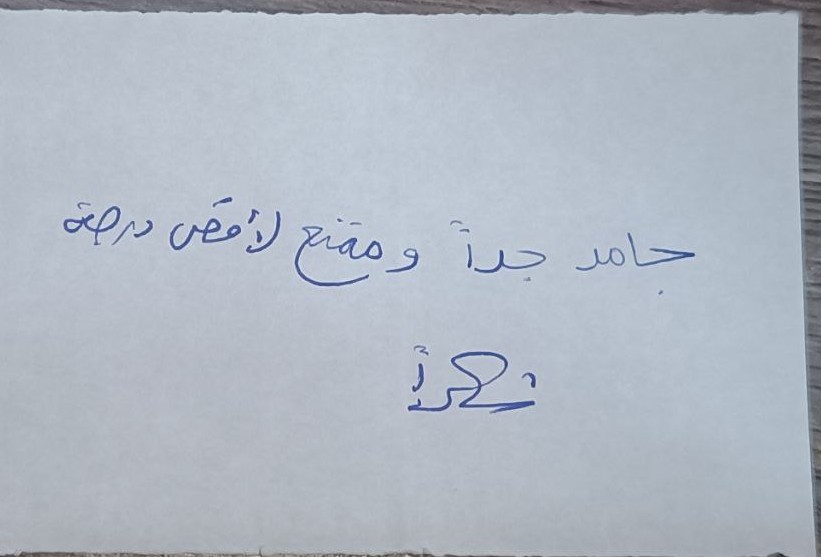 جامد جداً ومقنع لأقصى درجة
شكراً